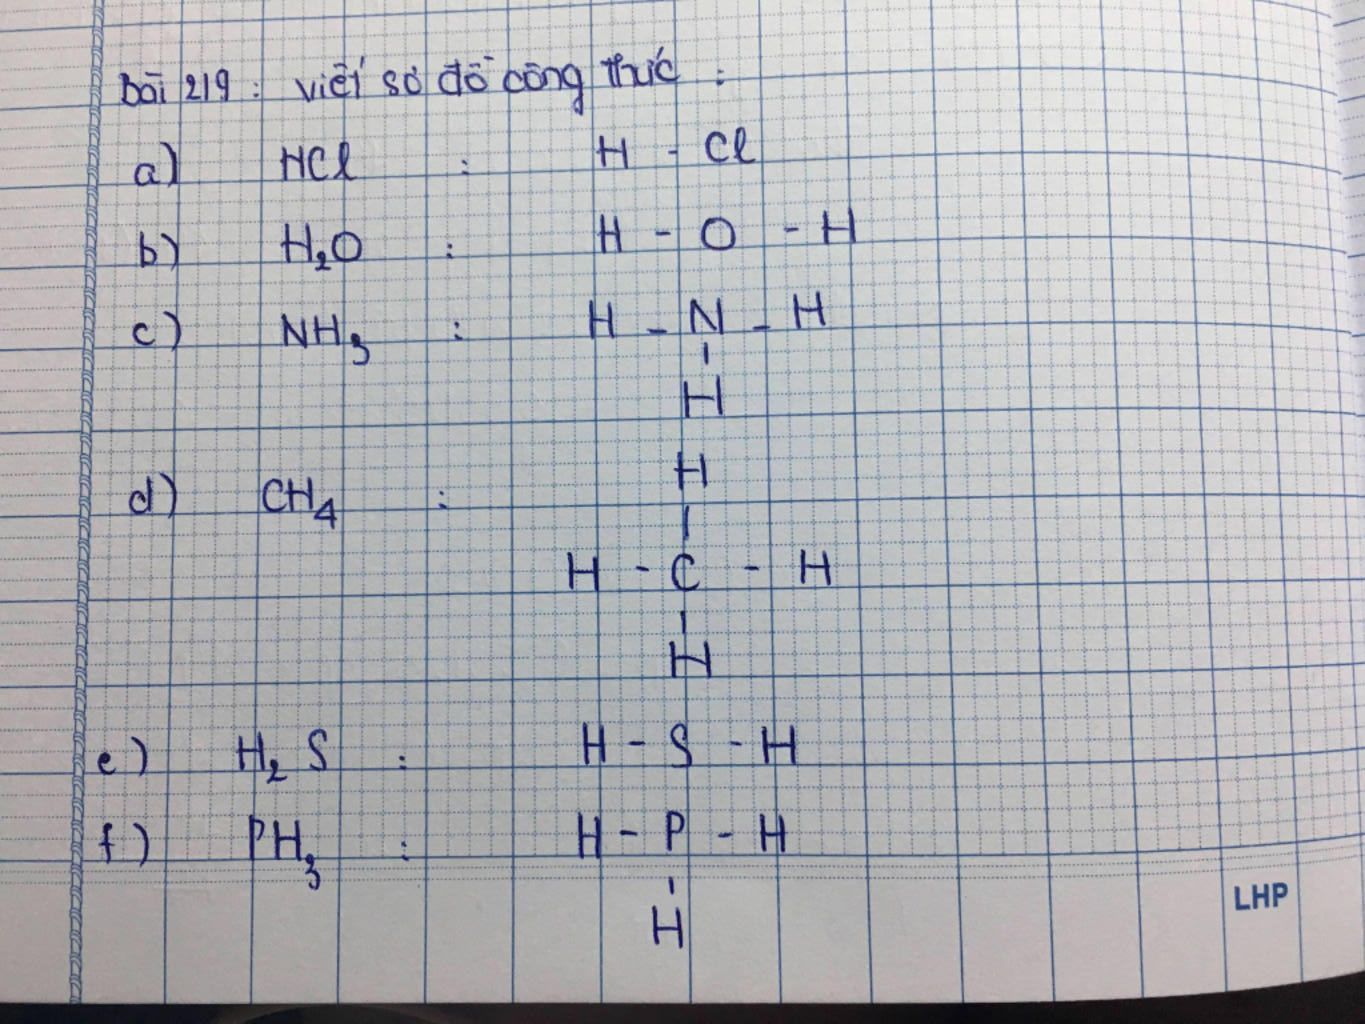 Bài 219 : viết sơ đồ công thức :
a) HCl : H - Cl
b) H₂O : H - O - H
c) NH₃ : H - N - H
|
H
H
d) CH₄ :
|
H - C - H
|
H
e) H₂S : H - S - H
f) PH₃ : H - P - H
|
LHP
H